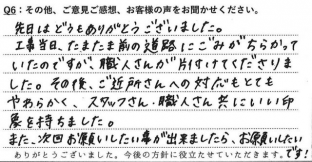 Q6：その他、ご意見ご感想、お客様の声をお聞かせください。
先日はどうもありがとうございました。
工事当日、たまたま前の道路にごみがちらかって
いたのですが、職人さんが片付けてくださりま
した。その後、ご近所さんへの対応もとても
やわらかく、スタッフさん・職人さん共にいい印
象を持ちました。
また、次回お願いしたい事が出来ましたら、お願いしたい
ありがとうございました。今後の方針に役立たせていただきます。です！